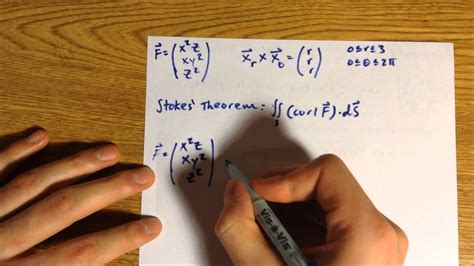 F⃗ = (x²z xy² z²) x⃗ᵣ × x⃗_θ = (r r r) 0≤r≤3 0≤θ≤2π
Stokes' Theorem: ∬_S (curl F⃗)·dS⃗
F⃗ = (x²z xy² z²)
VIS-à-VIS